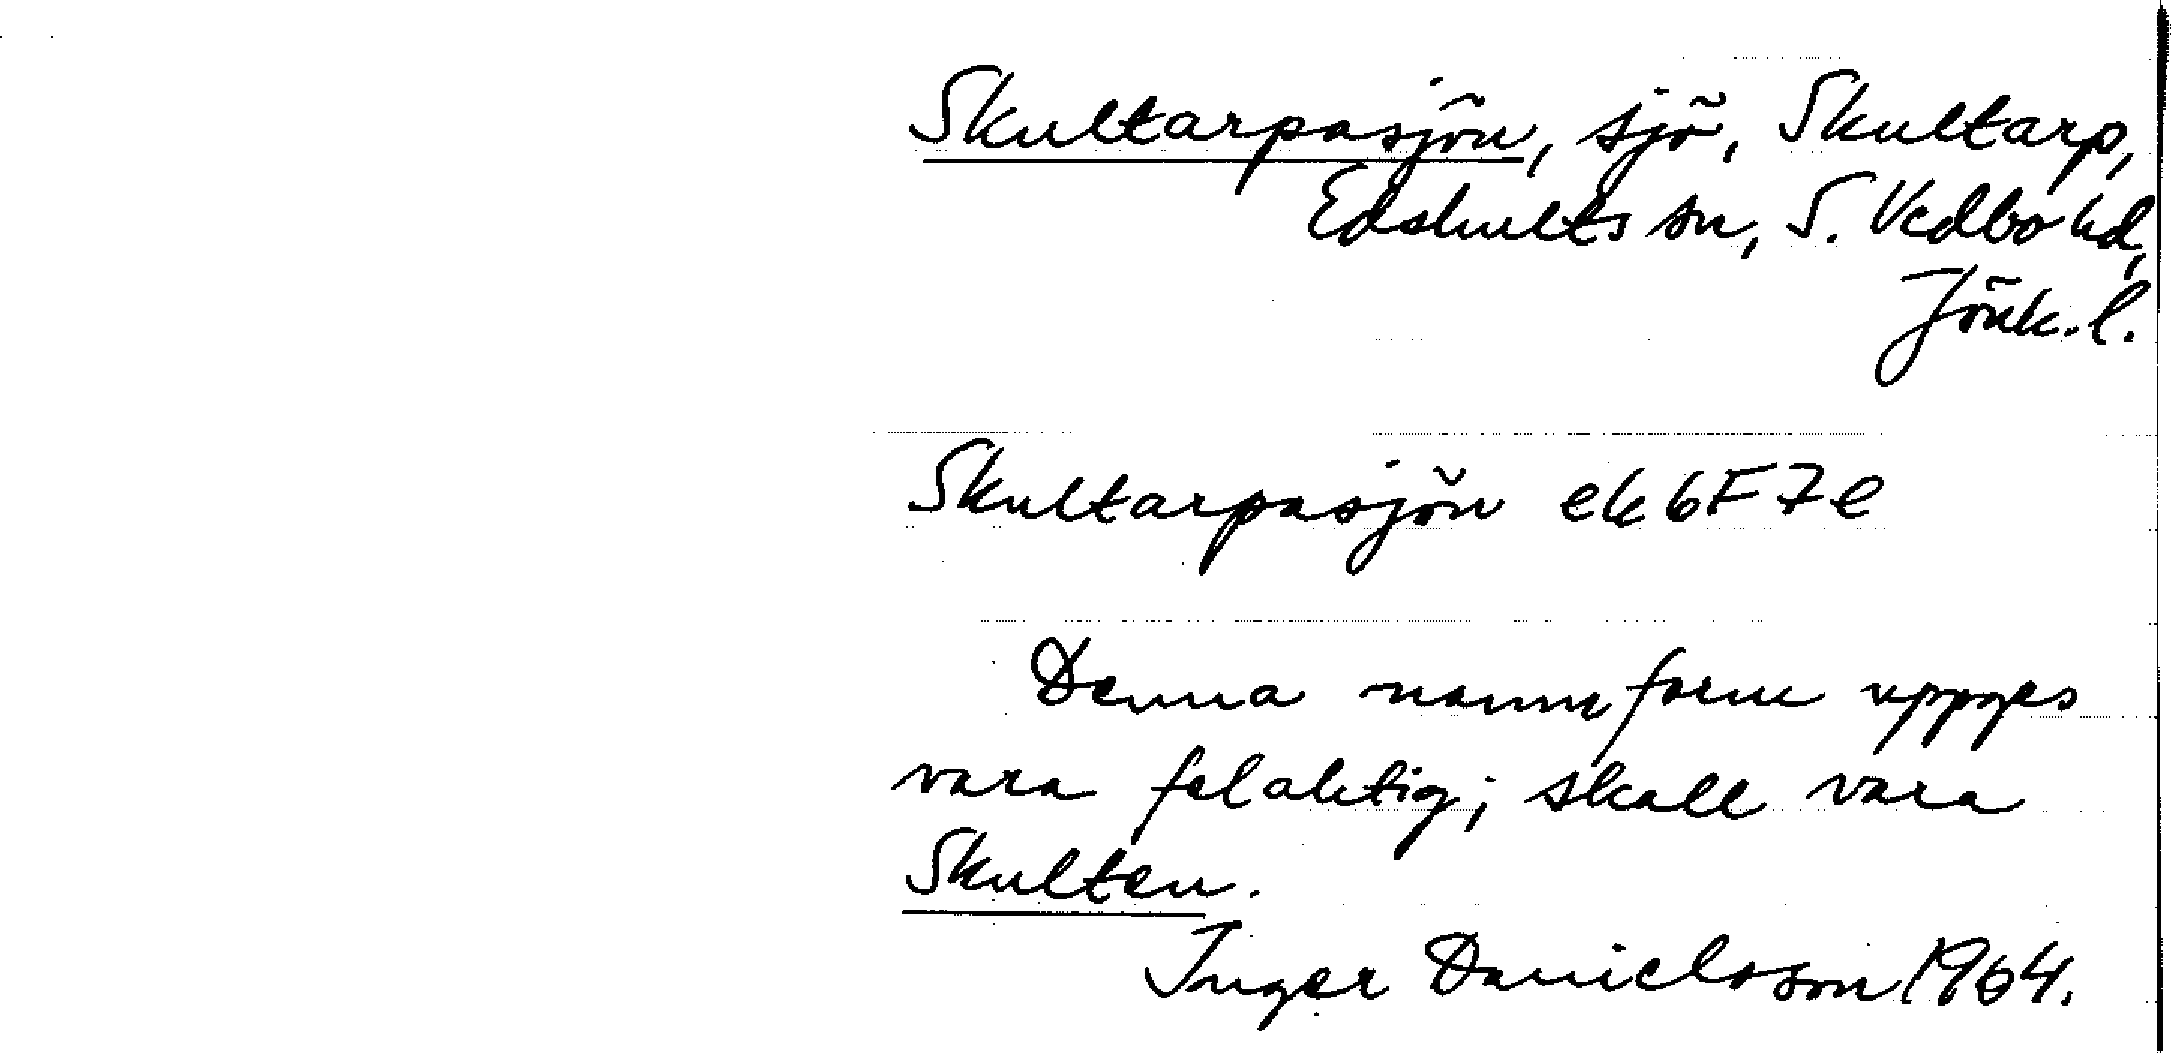 Skultarpasjön, sjö, Skultarp,
Edshults sn, S. Vedbo hd,
Jönk. l.
Skultarpasjön ek 6F7e
Denna namnform uppges
vara felaktig; skall vara
Skulten.
Inger Danielsson 1964.